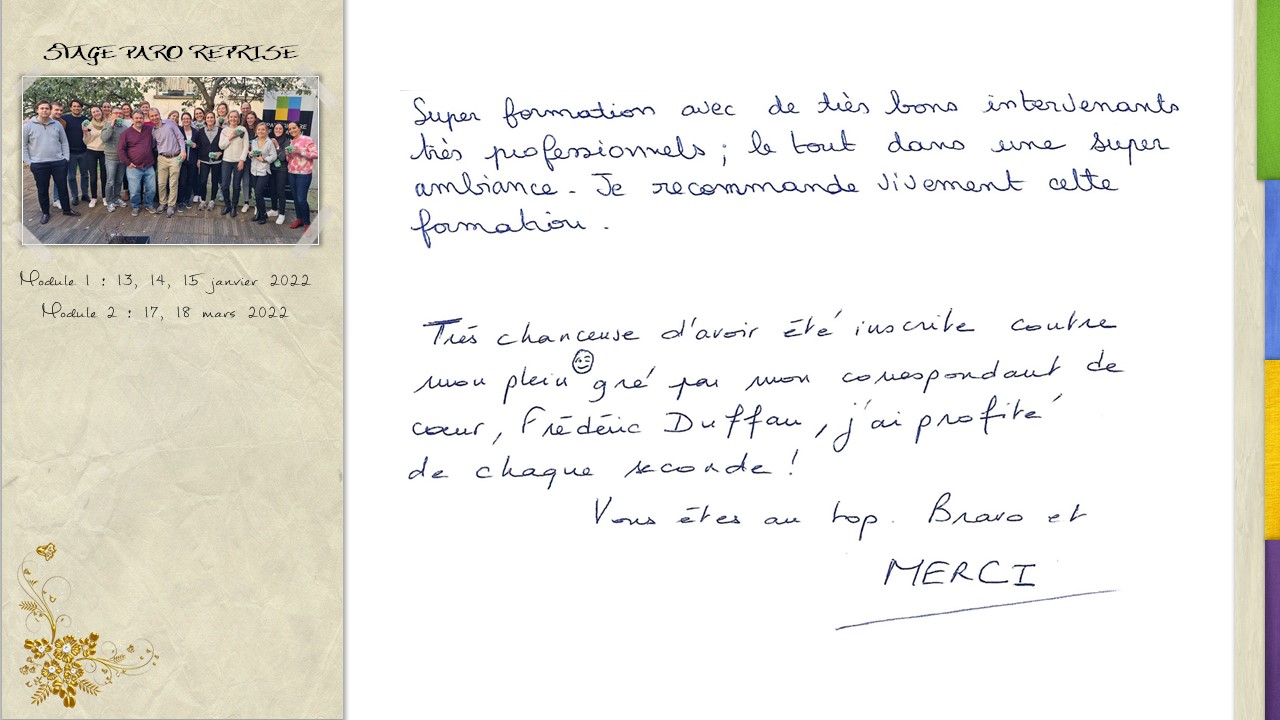 STAGE PARO REPRISE
Module 1 : 13, 14, 15 janvier 2022
Module 2 : 17, 18 mars 2022
Super formation avec de très bons intervenants
très professionnels ; le tout dans une super
ambiance. Je recommande vivement cette
formation.
Très chanceuse d'avoir été inscrite contre
mon plein gré par mon correspondant de
cœur, Frédéric Duffau, j'ai profité
de chaque seconde !
Vous êtes au top. Bravo et
MERCI